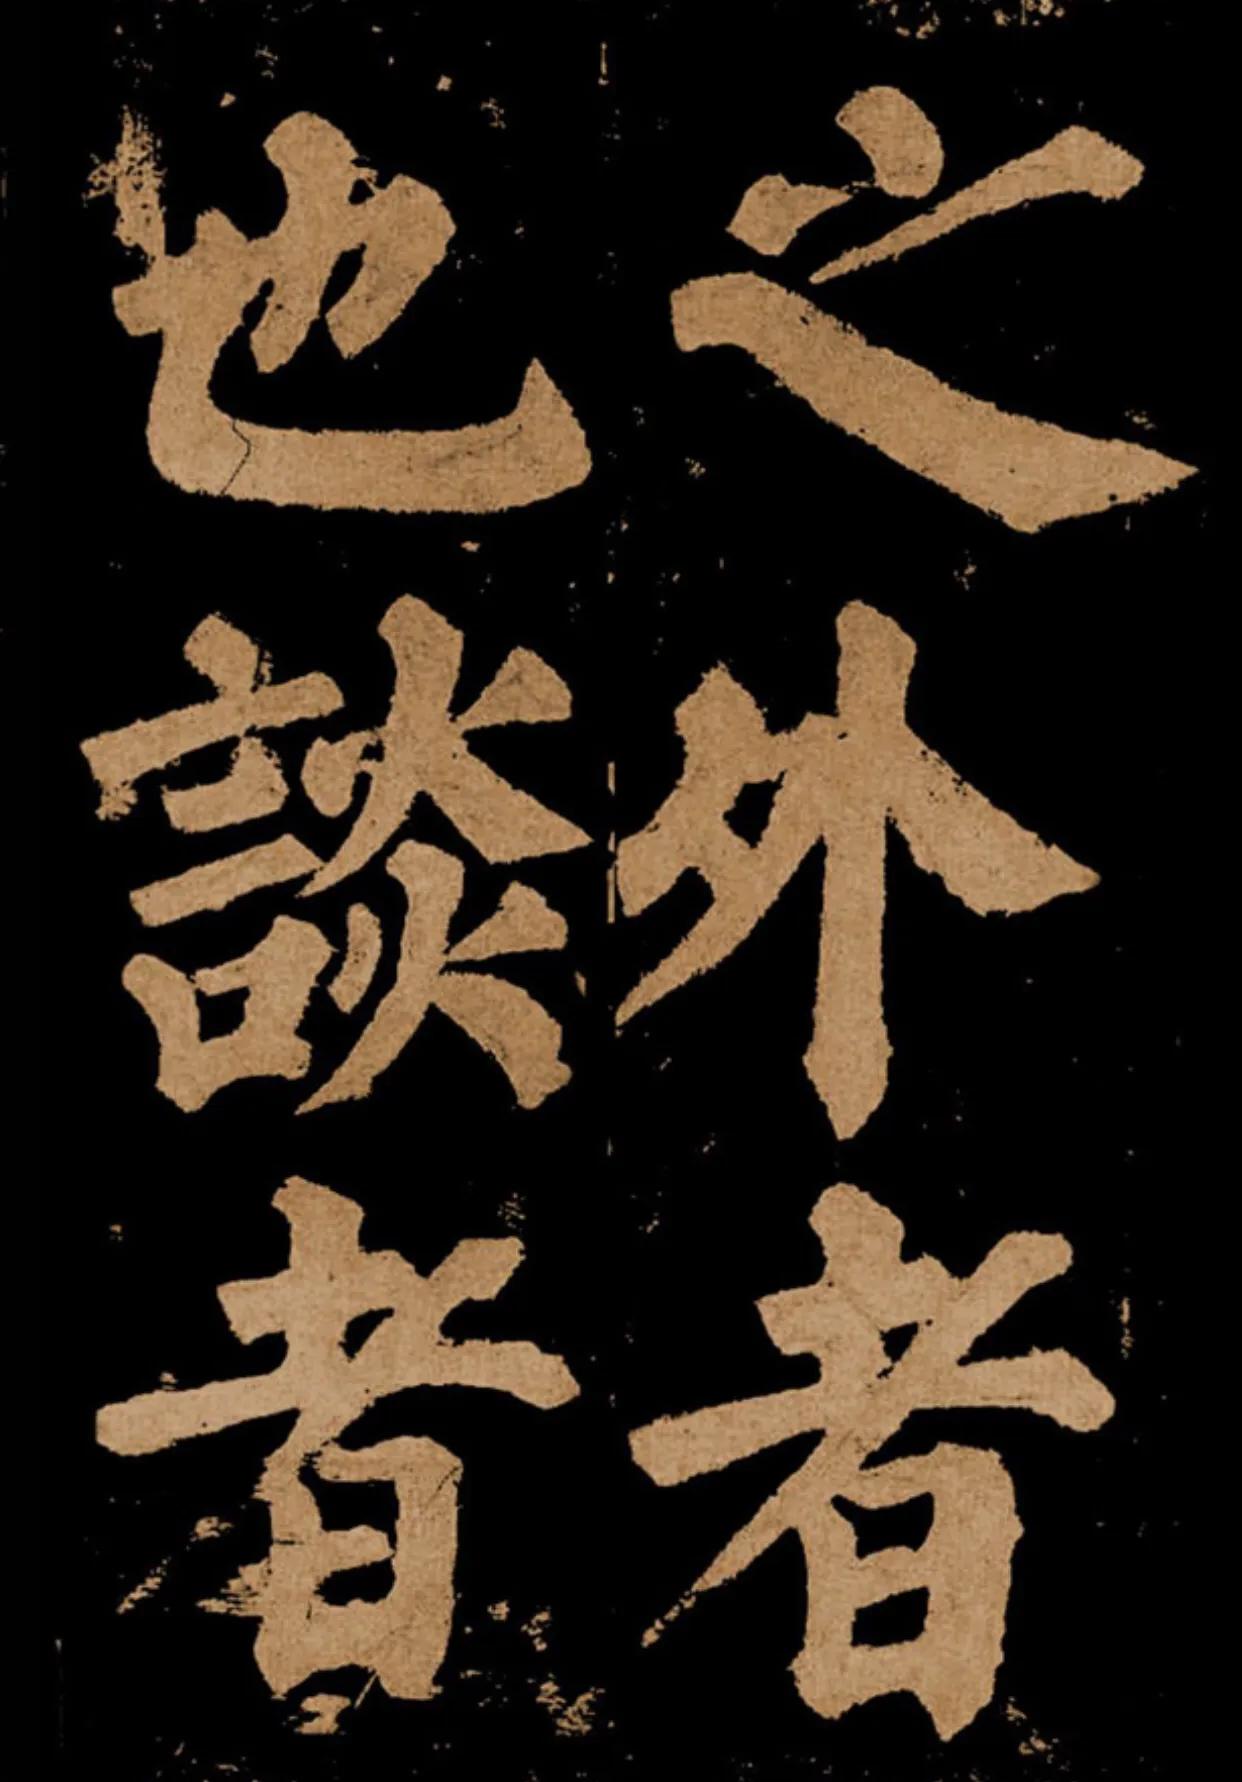 之外者
也談者